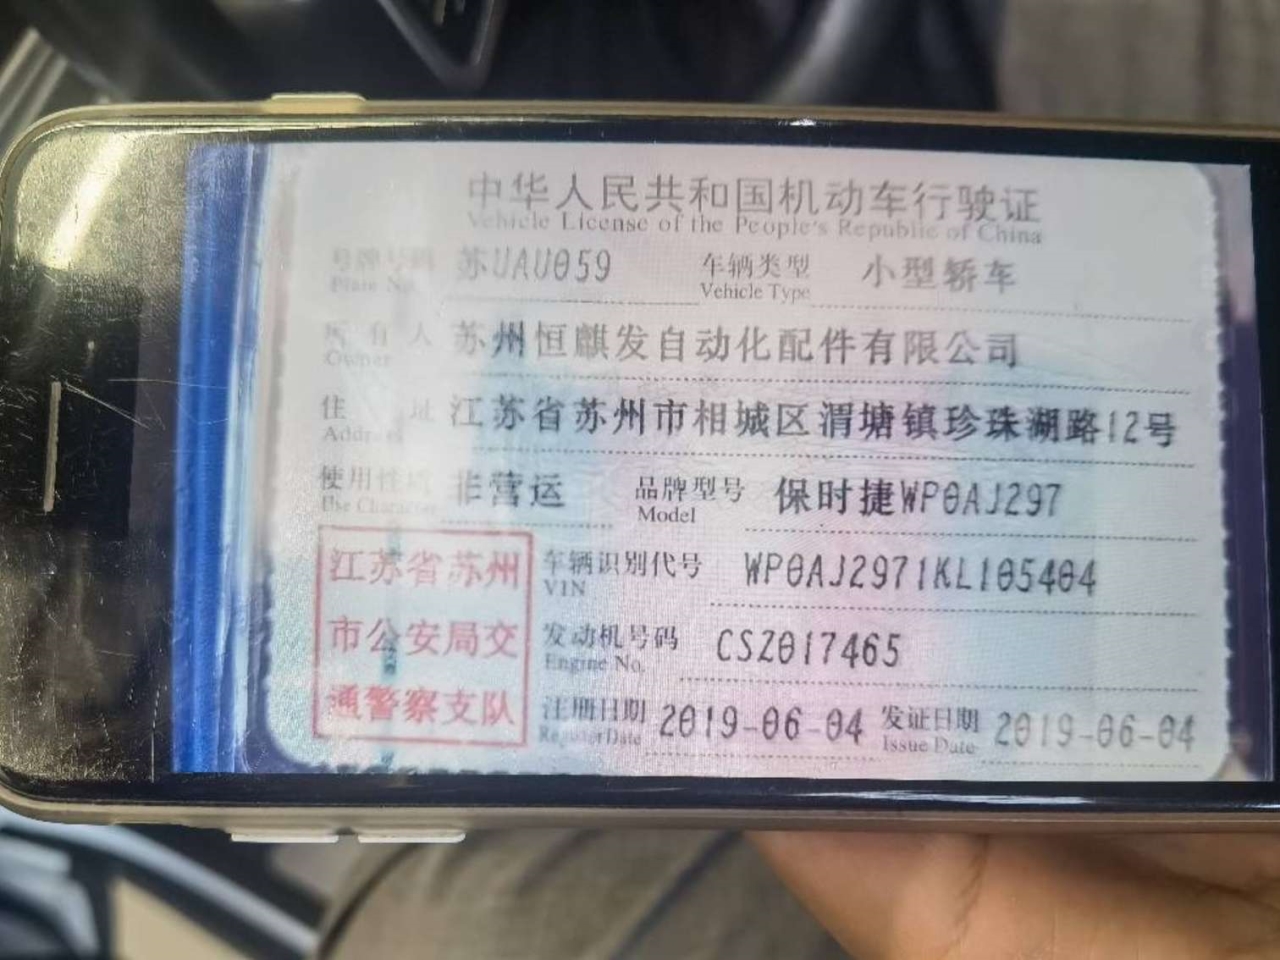 中华人民共和国机动车行驶证
Vehicle License of the People's Republic of China
号牌号码 苏UAU059 车辆类型 小型轿车
Plate No. Vehicle Type
所有人 苏州恒麒发自动化配件有限公司
Owner
住址 江苏省苏州市相城区渭塘镇珍珠湖路12号
Address
使用性质 非营运 品牌型号 保时捷WP0AJ297
Use Character Model
江苏省苏州 车辆识别代号 WP0AJ2971KL105404
VIN
市公安局交 发动机号码 CSZ017465
Engine No.
通警察支队 注册日期 2019-06-04 发证日期 2019-06-04
Register Date Issue Date